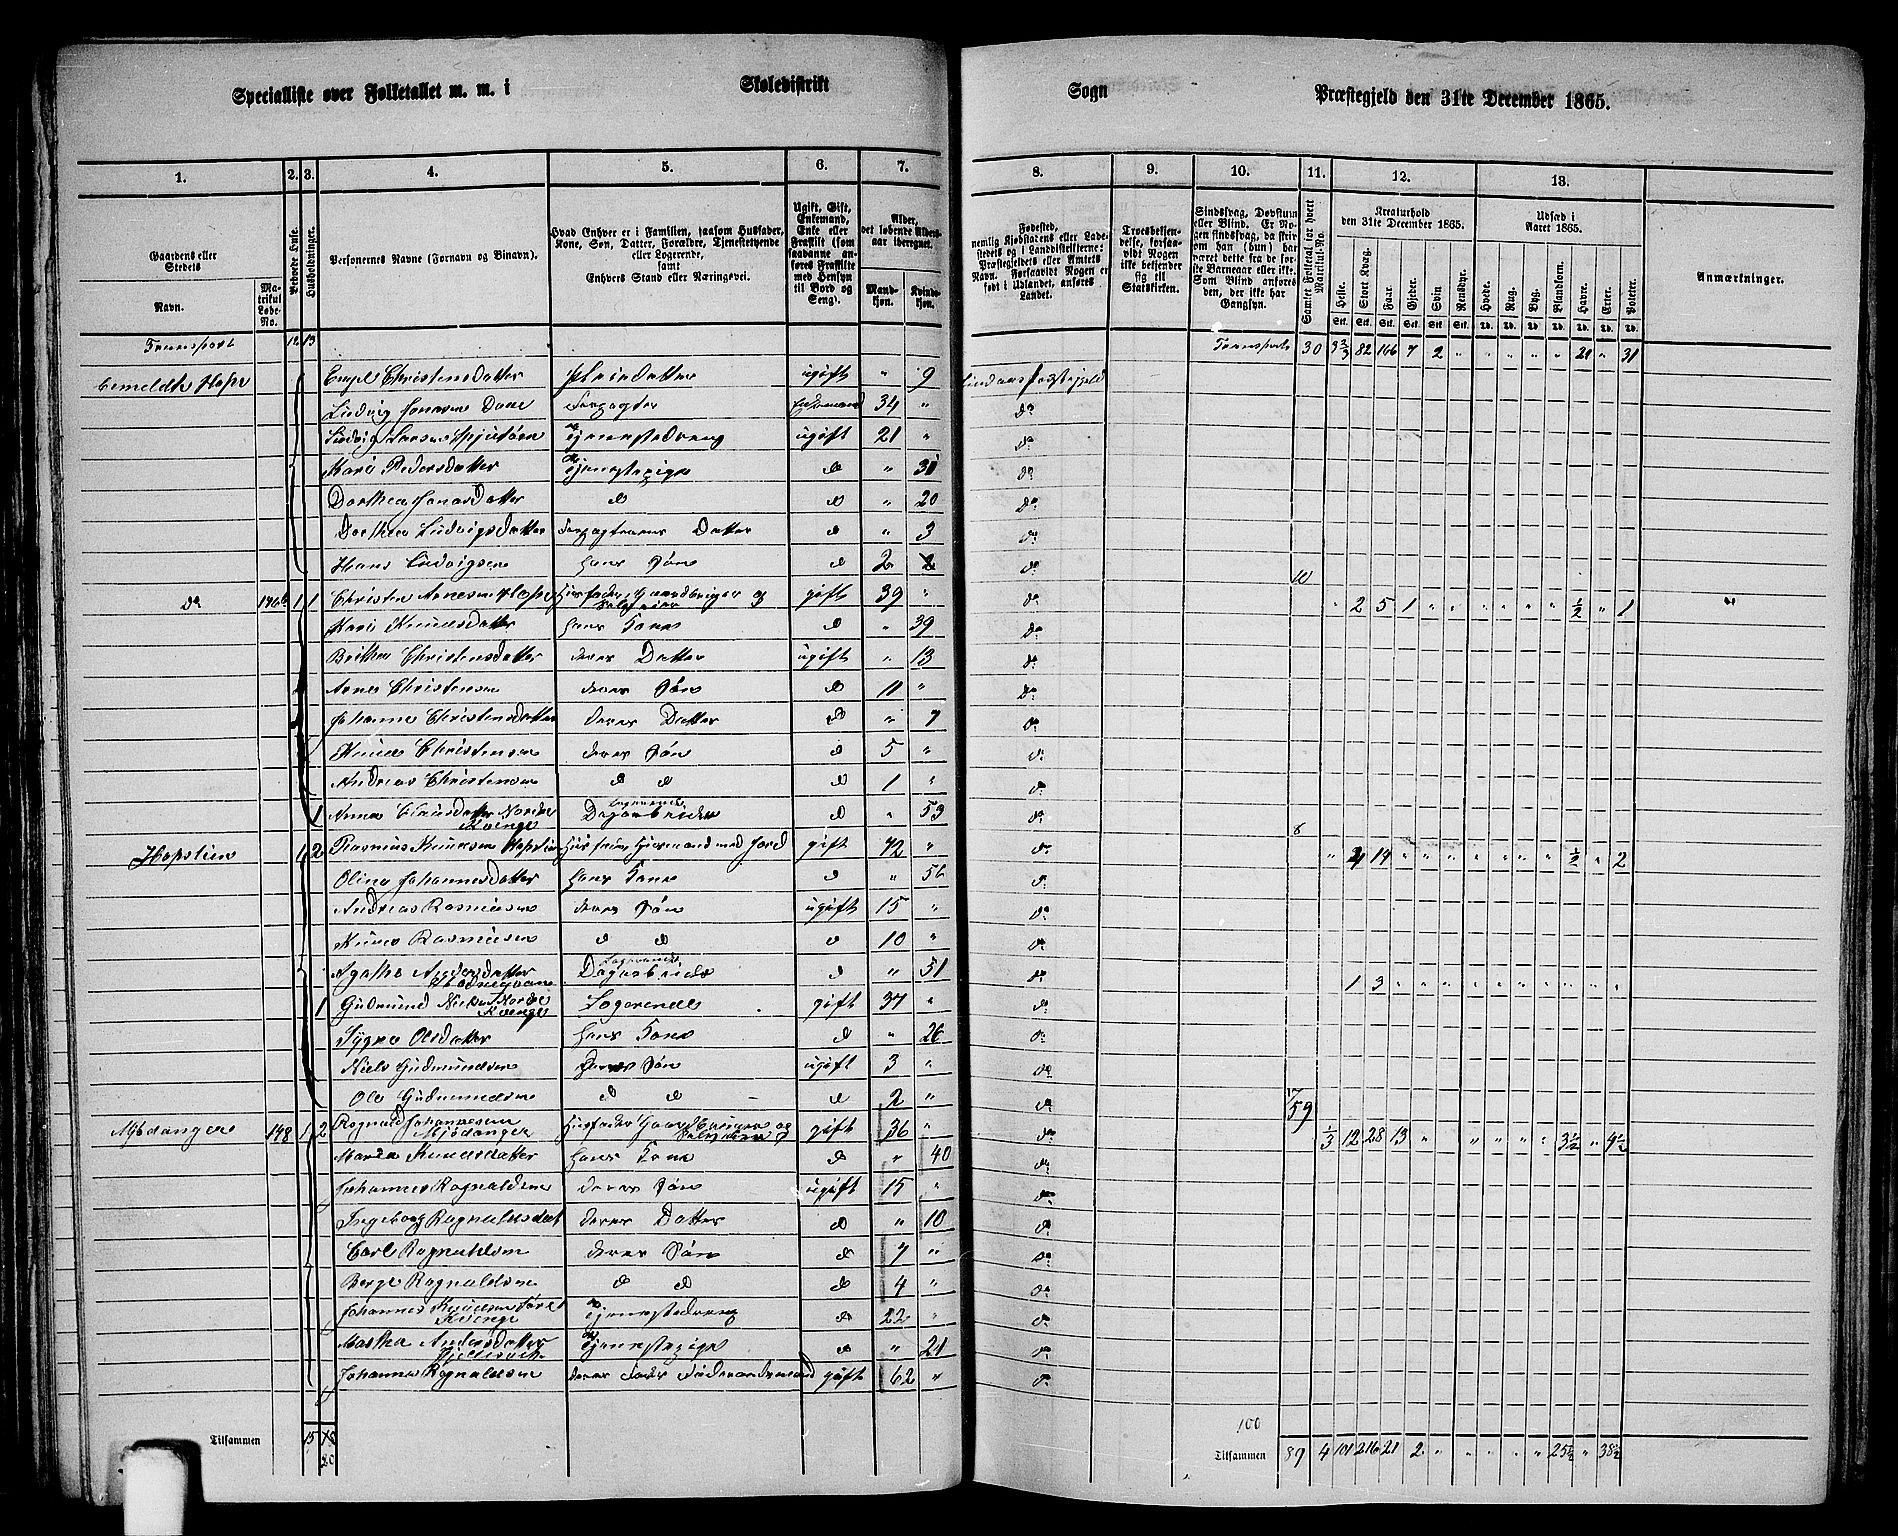 Specialliste over Folketallet m. m. i Skoledistrikt Sogn Præstegjeld den 31te December 1865.
1. 2. 3. 4. 5. 6. 7. 8. 9. 10. 11. 12. 13.
Gaardens eller Stedets
Navn.
Matrikul Løbe-No.
Beboede Huse.
Husholdninger.
Personernes Navne (Fornavn og Binavn).
Hvad Enhver er i Familien, saasom Husfader, Kone, Søn, Datter, Forældre, Tjenestetyende eller Logerende, samt Enhvers Stand eller Næringsvei.
Ugift, Gift, Enkemand, Enke eller Fraskilt (som saadanne anføres Fraskilte med Hensyn til Bord og Seng).
Alder, det løbende Aldersaar iberegnet.
Mandkjøn.
Kvindekjøn.
Fødested, nemlig Kjøbstadens eller Ladestedets og i Landdistrikterne: Præstegjeldets eller Amtets Navn. Forsaavidt Nogen er født i Udlandet, anføres Landet.
Troesbekjendelse, forsaavidt Nogen ikke bekjender sig til Statskirken.
Sindssvag, Døvstum eller Blind. Er Nogen sindssvag, da skrives om han (hun) har været dette fra de første Barneaar eller ikke. Som Blind anføres den, der ikke har Gangsyn.
Samlet Folketal for hvert Matrikul-No.
Kreaturhold den 31te December 1865.
Heste. Stort Kvæg. Faar. Gjeder. Svin Rensdyr.
Udsæd i Aaret 1865.
Hvede. Rug. Byg. Blandkorn. Havre. Erter. Poteter.
Anmærkninger.
Transport 12 13 Transport 30 3 2/3 82 166 7 2 " " " " " 21 " 31
Hope Engel Christensdatter Pleiedatter ugift " 9 Lindaas Præstegjeld
Ludvig Jonasen Dale Forpagter Enkemand 34 " do
Ludvig Larsen Tjenestedreng ugift 21 " do
Kari Pedersdatter Tjenestepige do " 31 do
Dorthea Jonasdatter do do " 20 do
Dorthea Ludvigsdatter Forpagterens Datter do " 3 do
Hans Ludvigsen hans Søn do 2 do 10
do 146b 1 1 Christen Arnesen Hope Husfader, Gaardbruger og Selveier gift 39 " do " 2 5 1 " " " " " " 1/2 " 1
Kari Knudsdatter hans Kone do " 39 do
Brithe Christensdatter deres Datter ugift " 13 do
Arne Christensen deres Søn do 11 " do
Johanne Christensdatter deres Datter do " 7 do
Knud Christensen deres Søn do 5 " do
Andreas Christensen do do do 1 " do
1 Anna Datter Nordre Kvinge Logerende Dagarbeide do " 53 do 8
Hopslien 1 2 Rasmus Knudsen Hopslien Husfader Huusmand med Jord gift 72 " do " 2 14 " " " " " " " 1/2 " 2
Oline Johannesdatter hans Kone do " 56 do
Andreas Rasmusen deres Søn ugift 15 " do
Knud Rasmusen do do do 10 " do
Agathe Andersdatter Logerende Dagarbeide do " 51 do
1 Gudmund Nielsen Nordre Kvinge Logerende gift 37 " do 1 3
Sygne Olsdatter hans Kone do " 26 do
Niels Gudmundsen deres Søn ugift 3 " do
Ole Gudmundsen do do do 2 " do 17
Mjødanger 148 1 2 Ragnald Johannesen Mjødanger Husfader Gaardbruger og Selveier gift 36 " do 59 1/3 12 28 13 " " " " " 3 1/2 " 4 1/2
Marta Knudsdatter hans Kone do " 40 do
Johannes Ragnaldsen deres Søn ugift 15 " do
Ingeborg Ragnaldsdat deres Datter do " 10 do
Carl Ragnaldsen deres Søn do 7 " do
Berge Ragnaldsen do do do 4 " do
Johannes Knudsen Kvinge Tjenestedreng do 22 " do
Marthe Andersdatter Tjenestepige do " 21 do
Johannes Ragnaldsen deres Fader Føderaadsmand gift 62 " do
100
Tilsammen 15 18 Tilsammen 89 4 101 216 21 2 " " " " 25 1/2 " 38 1/2
20